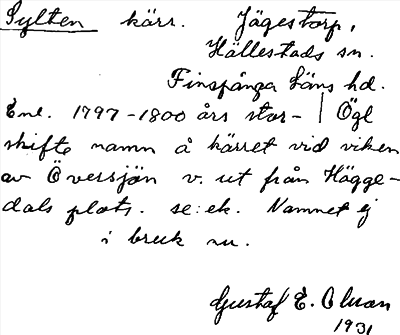 Sylten kärr. Jägestorp,
Hällestads sn.
Finspånga Läns hd.
Enl. 1797-1800 års stor- | Ögl
skifte namn å kärret vid viken
av Översjön v. ut från Hägge-
dals plats. se: ek. Namnet ej
i bruk nu.
Gustaf E. Olsson
1931